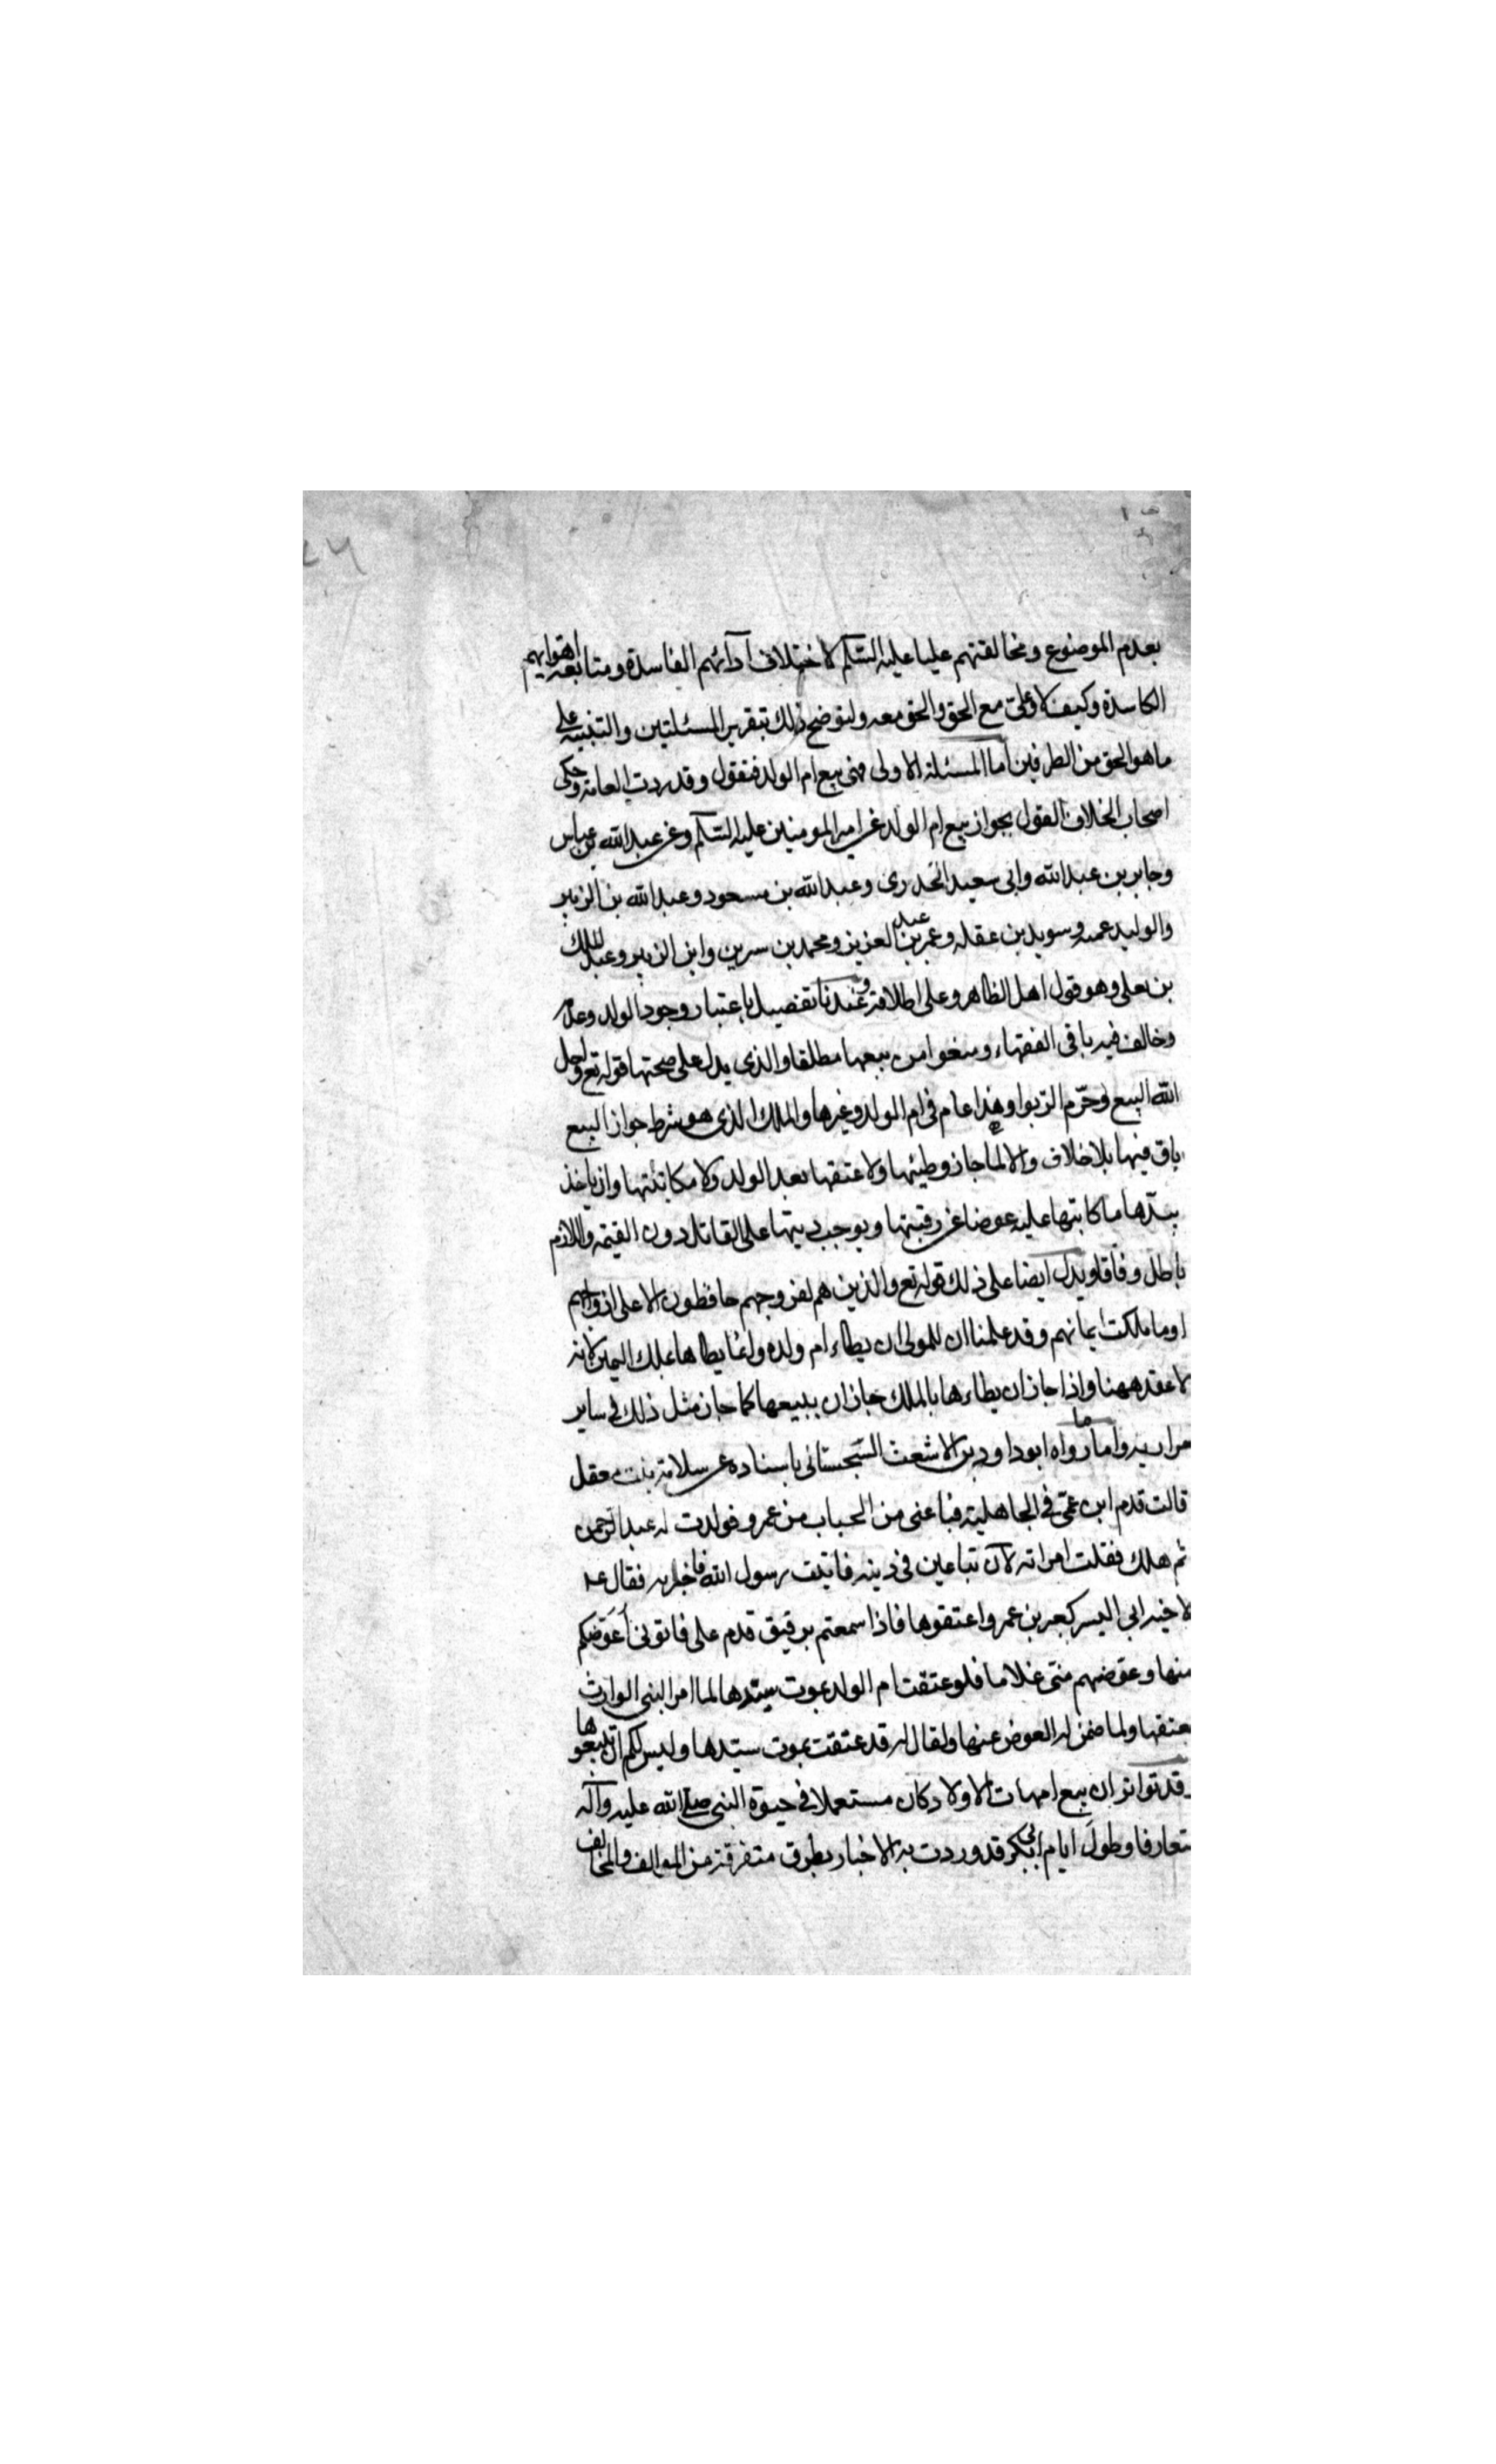 بعدم الموضوع ومخالفتهم عليا عليه السلم لاختلاف آرائهم الفاسدة ومتابعة اهوايهم
الكاسدة وكيف لا وعلى مع الحق والحق معه ولنوضح ذلك بتقرير المسئلتين والتنبيه على
ما هو الحق من الطرفين اما المسئلة الاولى فهى بيع ام الولد فنقول وقد ردت العامة وحكى
اصحاب الخلاف القول بجواز بيع ام الولد عن امير المومنين عليه السلم وعن عبد الله بن عباس
وجابر بن عبد الله وابى سعيد الخدرى وعبد الله بن مسعود وعبد الله بن الزبير
والوليد عمه وسويد بن عقله وعمر بن عبد العزيز ومحمد بن سرين وابن الزبير وعبد الملك
بن يعلى وهو قول اهل الظاهر وعلى اطلاقه وعندنا تفصيل باعتبار وجود الولد وعدمه
وخالف فيه باقى الفقهاء ومنعوا من بيعها مطلقا والذى يدل على صحتها قوله تع واحل
الله البيع وحرّم الربوا وهذا عام فى ام الولد وغيرها والملك الذى هو شرط جواز البيع
باق فيها بلا خلاف والا لما جاز وطيئها ولا عتقها بعد الولد ولا مكاتبتها وان ياخذ
سيّدها ما كاتبها عليه عوضا عن رقبتها ويوجب ديتها على القاتل دون القيمة واللازم
باطل وفاقا ويدل ايضا على ذلك قوله تع والذين هم لفروجهم حافظون الا على ازواجهم
او ما ملكت ايمانهم وقد علمنا ان للمولى ان يطاء ام ولده وانما يطاها بملك اليمين لانه
لا عقد ههنا واذا جاز ان يطاءها بالملك جاز ان يبيعها كما جاز مثل ذلك فى ساير
جواريه واما ما رواه ابو داود بن الاشعث السّجستانى باسناده عن سلامة بنت معقل
قالت قدم ابن عمّى فى الجاهلية فباعنى من الحباب من عمرو فولدت له عبد الرّحمن
ثم هلك فقلت امراته الآن تباعين فى دينه فاتيت رسول الله فاخبرته فقال عه
لاخيه ابى اليسر كعب بن عمر واعتقوها فاذا سمعتم برقيق قدم على فاتونى أعَوّضكم
منها وعوّضهم منّى غلاما فلو عتقت ام الولد بموت سيّدها لما امر النبى الوارث
بعتقها ولما ضمن له العوض عنها ولقال له قد عتقت بموت سيّدها وليس لكم ان تبيعوها
وقد تواتر ان بيع امهات الاولاد كان مستعملا فى حيوة النبى صلى الله عليه وآله
متعارفا وطولَ ايام ابى بكر قد وردت به الاخبار بطرق متفرقة من الموالف والمخالف